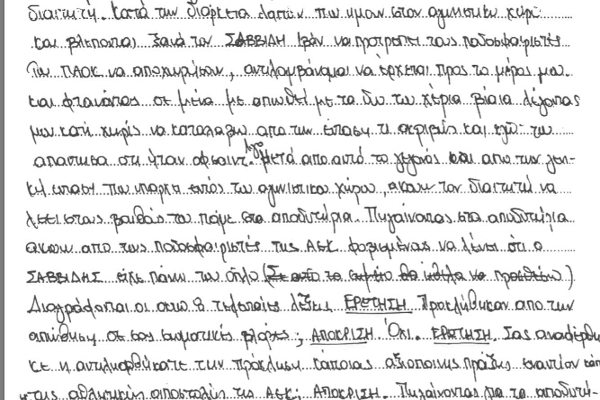 διαιτητή. Κατά την διάρκεια λοιπόν που ήμουν στον αγωνιστικό χώρο
και βλέποντας ξανά τον ΣΑΒΒΙΔΗ Ιβάν να προτρέπει τους ποδοσφαιριστές
του ΠΑΟΚ να αποχωρήσουν, αντιλαμβάνομαι να έρχεται προς το μέρος μου
και φτάνοντας σε μένα με απωθεί με τα δυο του χέρια βίαια λέγοντας
μου κάτι χωρίς να καταλάβω από την ένταση τι ακριβώς και εγώ του
απάντησα ότι ήταν οφσάιντ. Λίγο μετά από αυτό το γεγονός και από την γενι-
κή ένταση που υπήρχε εντός του αγωνιστικού χώρου, άκουσα τον διαιτητή να
λέει στους βοηθούς του πάμε στα αποδυτήρια. Πηγαίνοντας στα αποδυτήρια
άκουσα από τους ποδοσφαιριστές της ΑΕΚ φοβισμένους να λένε ότι ο
ΣΑΒΒΙΔΗΣ είχε πάνω του όπλο (Σε αυτό το σημείο θα ήθελα να προσθέσω)
Διαγράφονται οι άνω 8 τελευταίες λέξεις ΕΡΩΤΗΣΗ Προκλήθηκαν από την
απώθηση σε εσάς σωματικές βλάβες; ΑΠΟΚΡΙΣΗ Όχι. ΕΡΩΤΗΣΗ. Σας αναφέρθη-
κε ή αντιληφθήκατε την πρόκληση κάποιας αξιόποινης πράξης εναντίον
της αθλητικής αποστολής της ΑΕΚ; ΑΠΟΚΡΙΣΗ. Πηγαίνοντας για τα αποδυτή-